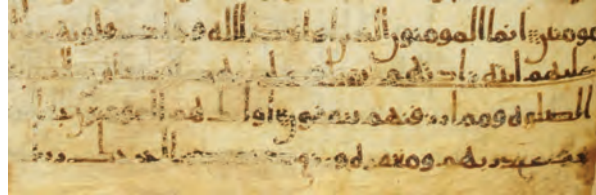 مومنين انما المومنون الذين اذا ذكر الله وجلت قلوبهم
عليهم ايته زادتهم ايمنا وعلى ربهم يتوكلون
الصلوه ومما رزقنهم ينفقون اولئك هم المومنون حقا
عند ربهم ومغفره ورزق كريم كما اخرجك ربك